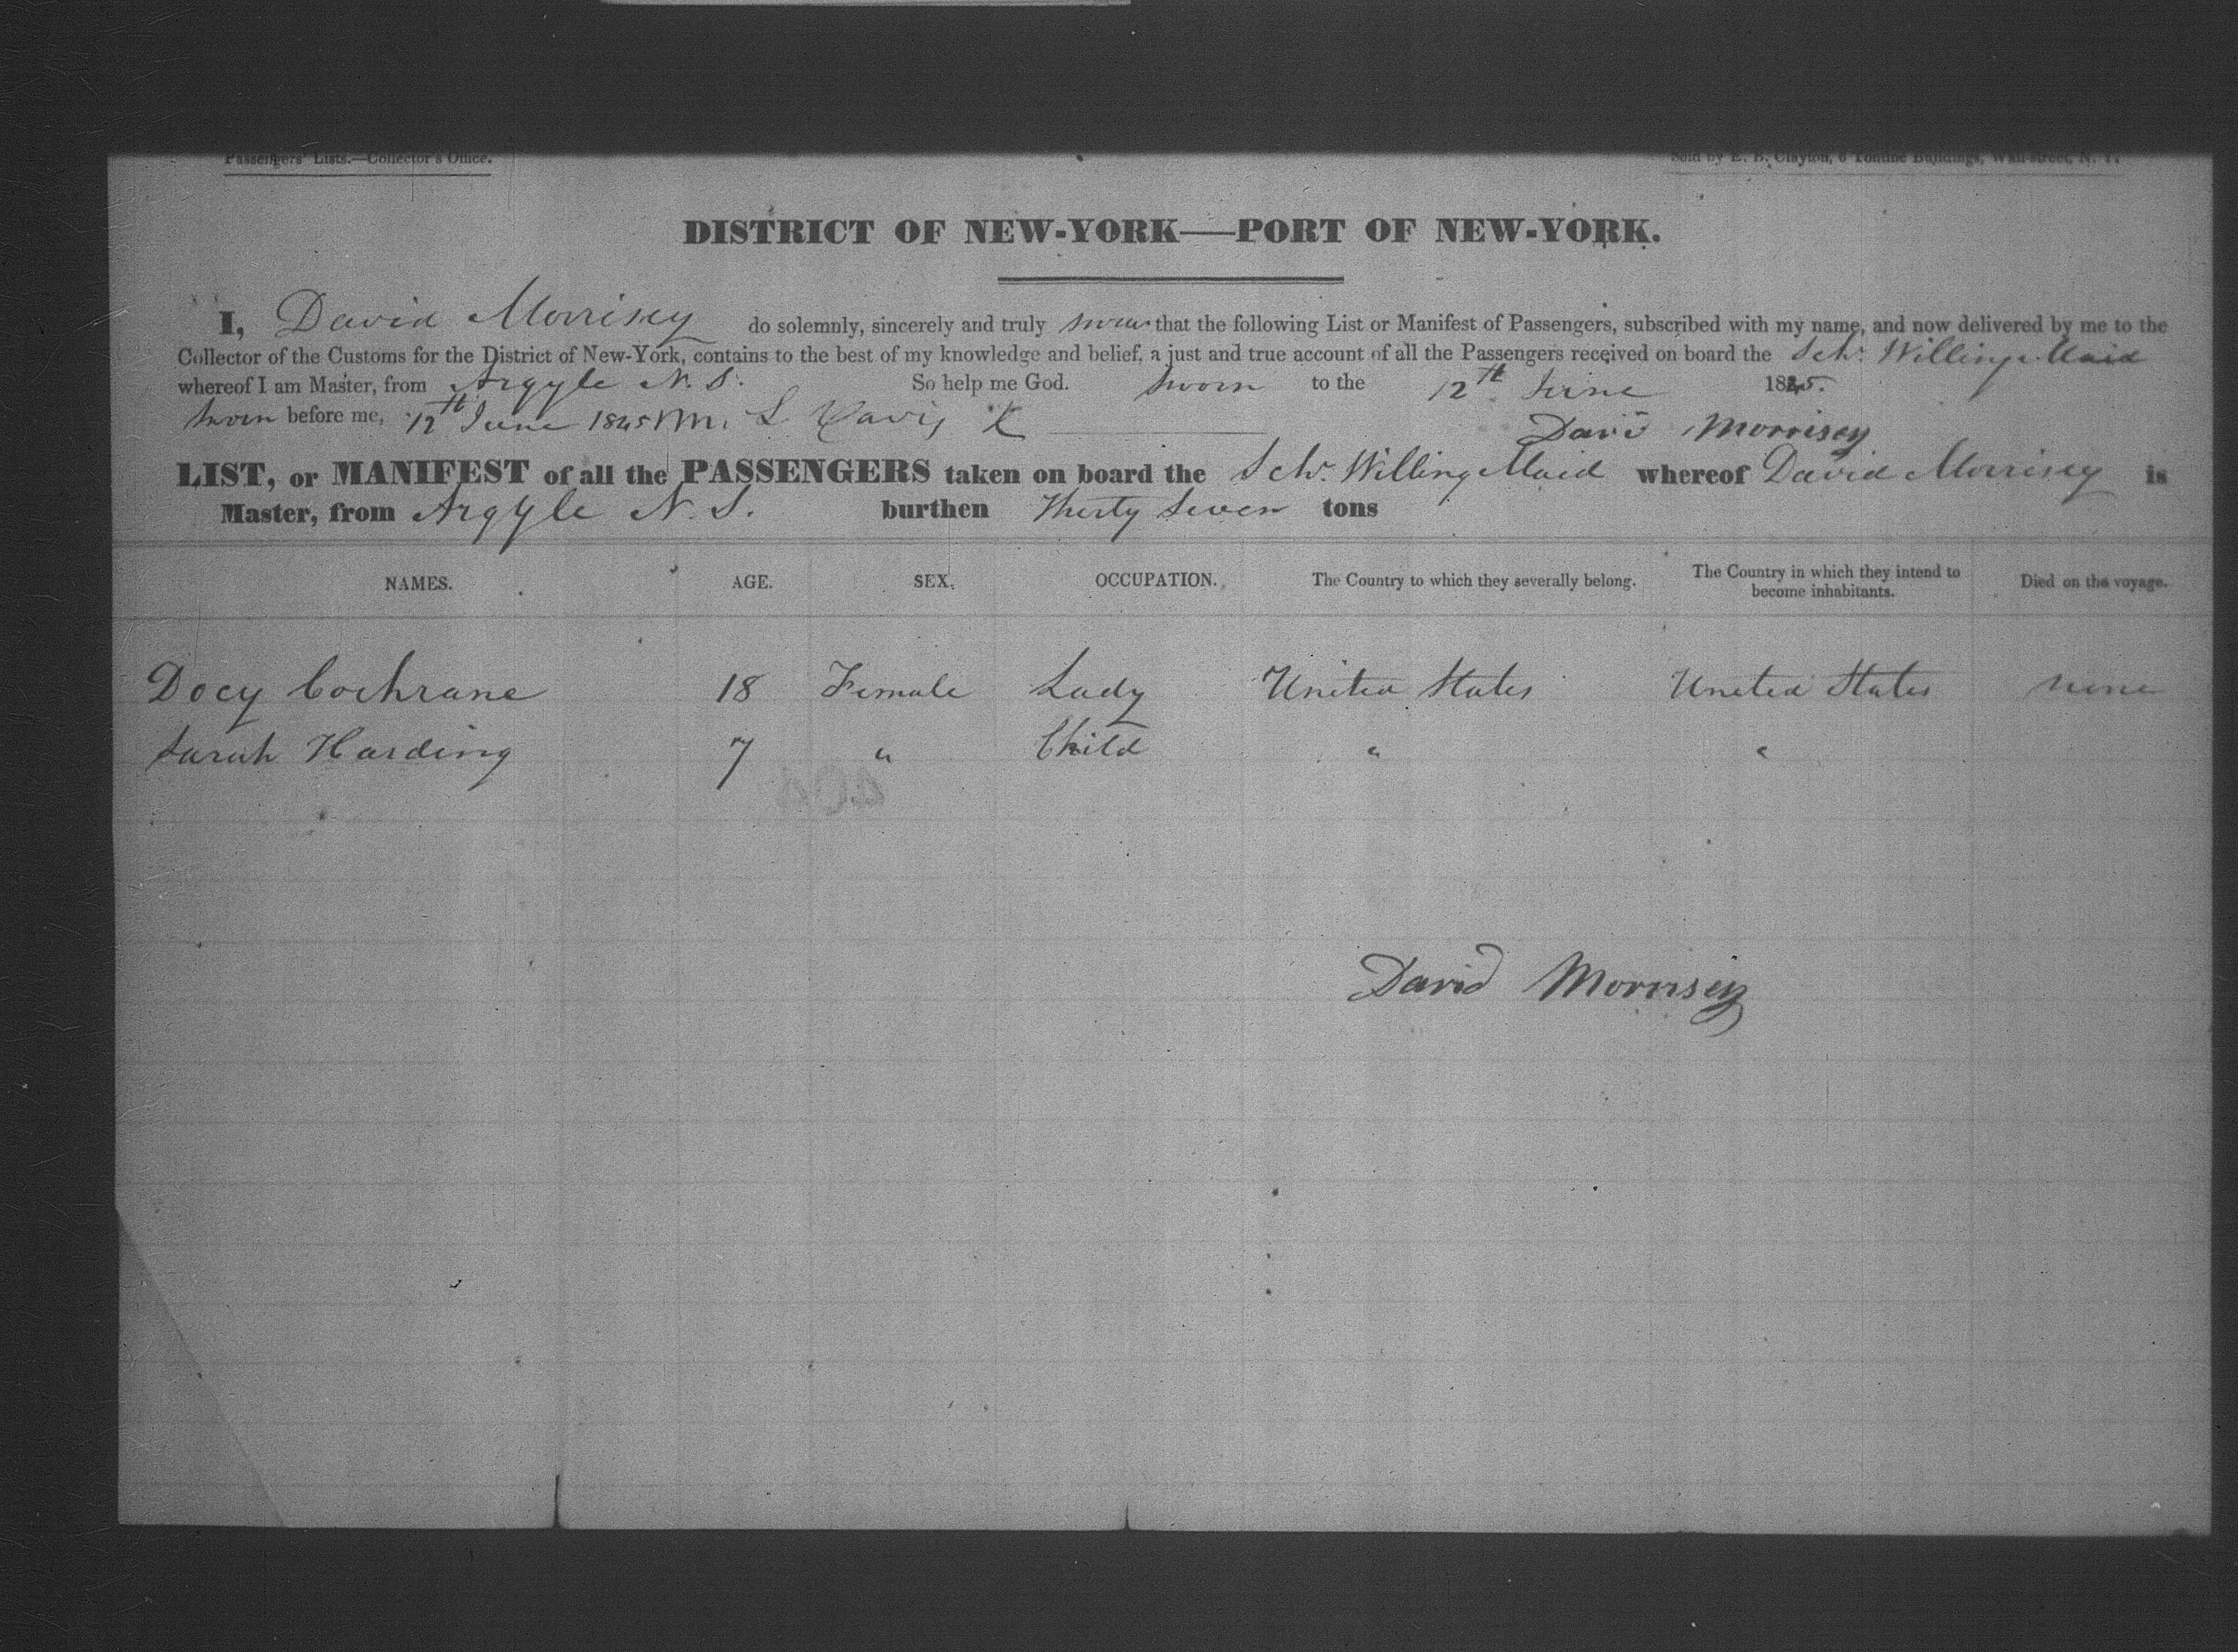 Passengers' Lists.—Collector's Office.
Sold by E. B. Clayton, 6 Tontine Buildings, Wall-street, N. Y.
DISTRICT OF NEW-YORK—PORT OF NEW-YORK.
I, David Morrisey do solemnly, sincerely and truly swear that the following List or Manifest of Passengers, subscribed with my name, and now delivered by me to the
Collector of the Customs for the District of New-York, contains to the best of my knowledge and belief, a just and true account of all the Passengers received on board the Schr. Willing Maid
whereof I am Master, from Argyle N. S. So help me God. Sworn to the 12th June 1845.
Sworn before me, 12th June 1845 M. L Davis
David Morrisey
LIST, or MANIFEST of all the PASSENGERS taken on board the Schr. Willing Maid whereof David Morrisey is
Master, from Argyle N. S. burthen Thirty Seven tons
NAMES. AGE. SEX. OCCUPATION. The Country to which they severally belong. The Country in which they intend to become inhabitants. Died on the voyage.
Docy Cochrane 18 Female Lady United States United States none
Sarah Harding 7 " Child " "
David Morrisey